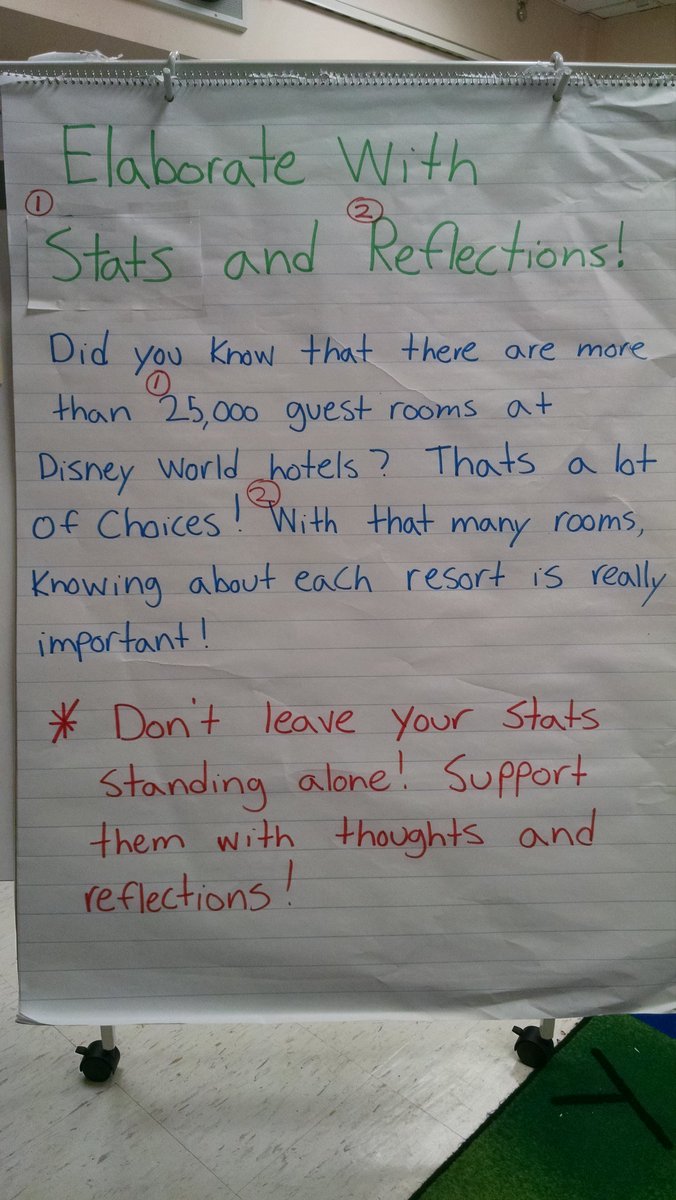 Elaborate With
① Stats and ② Reflections!
Did you know that there are more
than ① 25,000 guest rooms at
Disney World hotels? Thats a lot
of Choices! ② With that many rooms,
Knowing about each resort is really
important!
* Don't leave your Stats
Standing alone! Support
them with thoughts and
reflections!